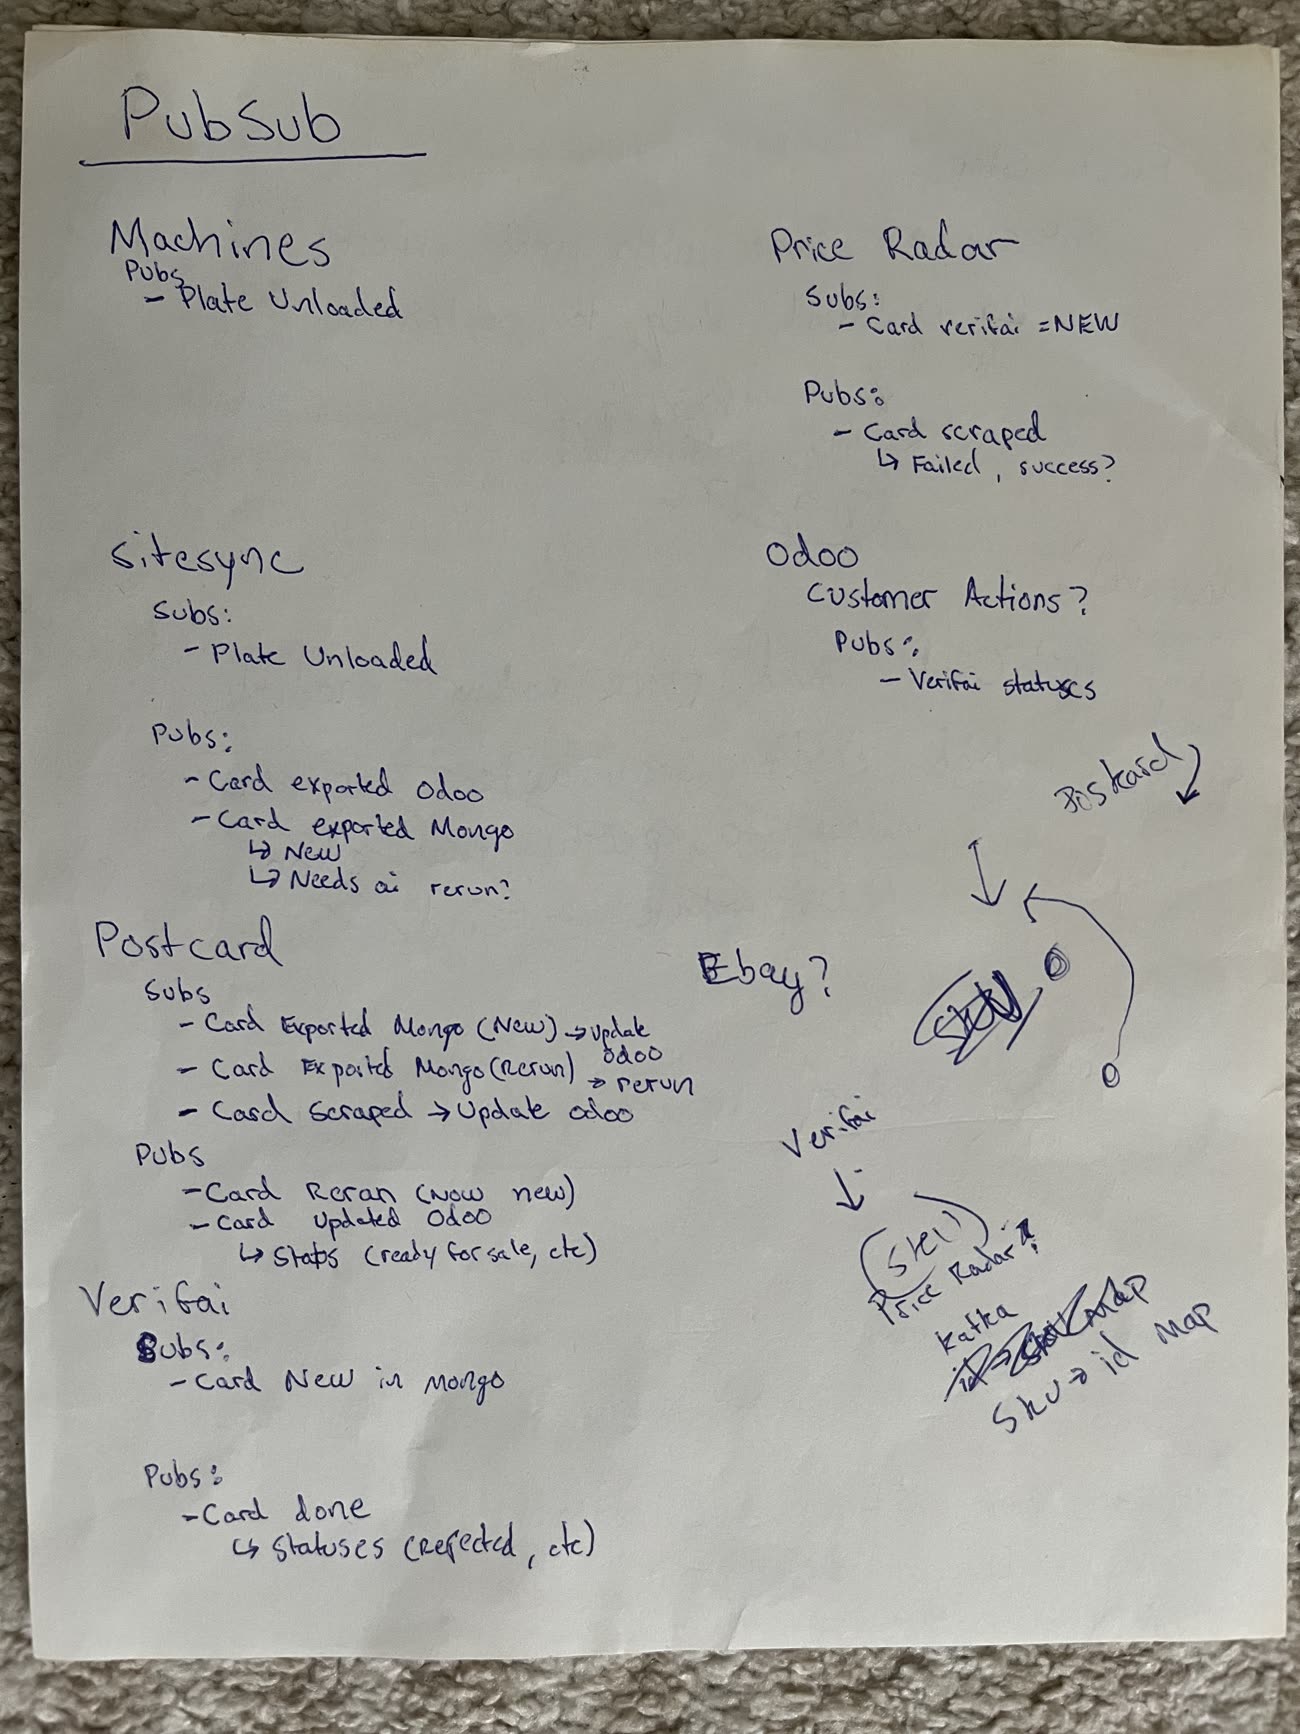 PubSub
Machines
Pubs
- Plate Unloaded
sitesync
Subs:
- Plate Unloaded
Pubs:
- Card exported Odoo
- Card exported Mongo
↳ New
↳ Needs ai rerun?
Postcard
Subs
- Card Exported Mongo (New) → update Odoo
- Card Exported Mongo (Rerun) → rerun
- Card Scraped → Update Odoo
Pubs
- Card Reran (Now new)
- Card Updated Odoo
↳ (ready for sale, etc)
Verifai
Subs:
- Card New in Mongo
Pubs:
- Card done
↳ Statuses (Rejected, etc)
Price Radar
Subs:
- Card verifai = NEW
Pubs:
- Card scraped
↳ Failed, success?
Odoo
Customer Actions?
Pubs:
- Verifai statuses
Postcard
Ebay?
Verifai
Price Radar
Kafka
Sku → id Map